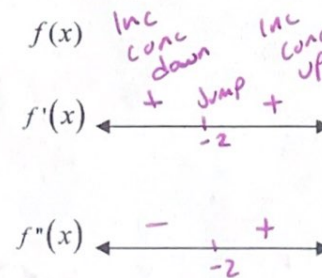 f(x) Inc conc down Inc conc up
f'(x) + Jump +
-2
f"(x) - +
-2